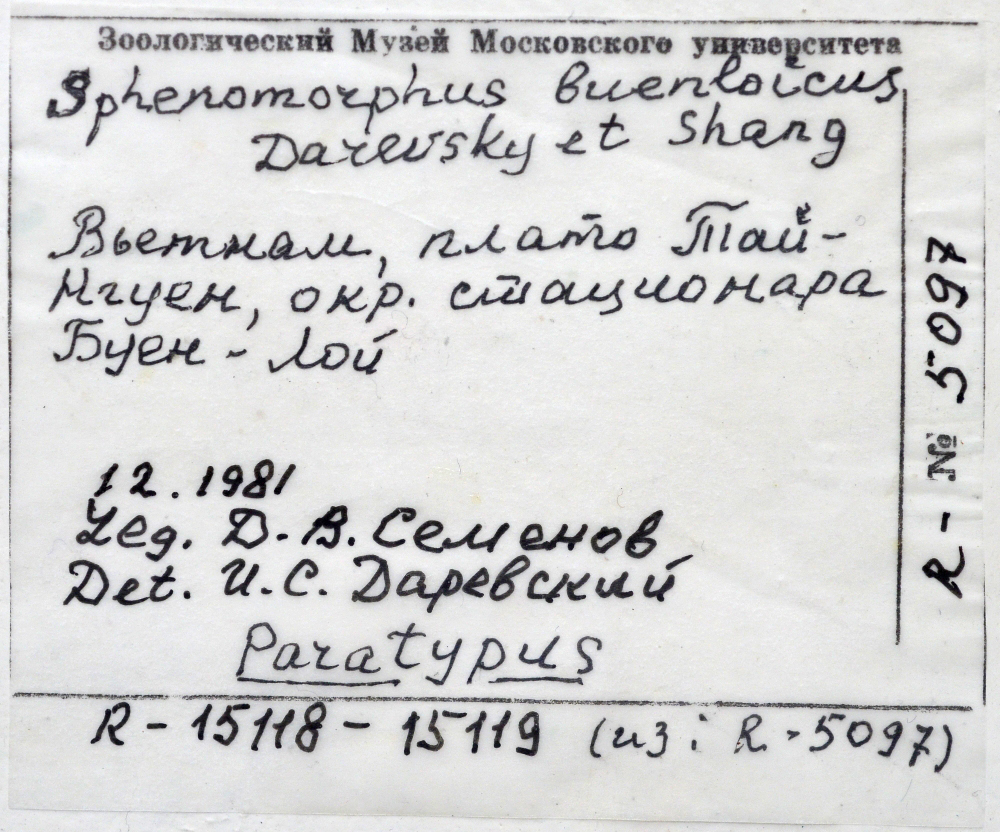 Зоологический Музей Московского университета
Sphenomorphus buenloicus
Darevsky et Shang
Вьетнам, плато Тай-
Нгуен, окр. стационара
Буен - Лой
12.1981
Leg. Д.В. Семенов
Det. И.С. Даревский
Paratypus
R - 15118 - 15119 (из: R - 5097)
R - № 5097